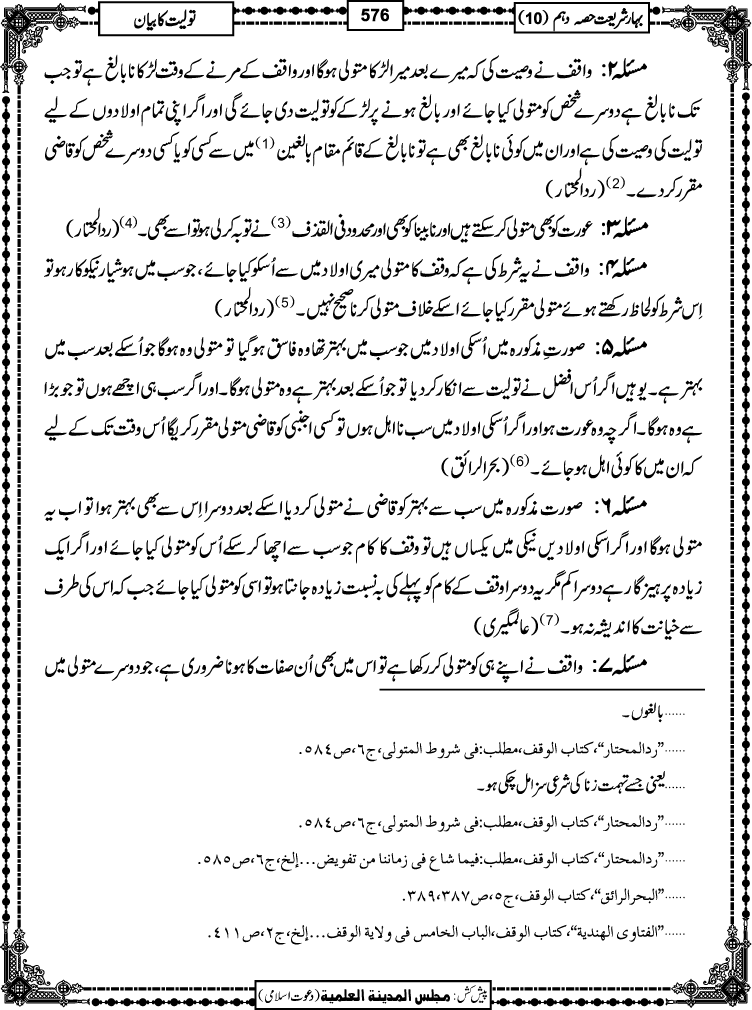 بہارِ شریعت حصہ دہم (10)
576
تولیت کا بیان
مسئلہ ۲: واقف نے وصیت کی کہ میرے بعد میرا لڑکا متولی ہوگا اور واقف کے مرنے کے وقت لڑکا نابالغ ہے تو جب
تک نابالغ ہے دوسرے شخص کو متولی کیا جائے اور بالغ ہونے پر لڑکے کو تولیت دی جائے گی اور اگر اپنی تمام اولادوں کے لیے
تولیت کی وصیت کی ہے اور ان میں کوئی نابالغ بھی ہے تو نابالغ کے قائم مقام بالغین (1) میں سے کسی کو یا کسی دوسرے شخص کو قاضی
مقرر کردے۔ (2) (ردالمحتار)
مسئلہ ۳: عورت کو بھی متولی کرسکتے ہیں اور نابینا کو بھی اور محدود فی القذف (3) نے توبہ کرلی ہو تو اسے بھی۔ (4) (ردالمحتار)
مسئلہ ۴: واقف نے یہ شرط کی ہے کہ وقف کا متولی میری اولاد میں سے اُسکو کیا جائے، جو سب میں ہوشیار نیکوکار ہو تو
اِس شرط کو لحاظ رکھتے ہوئے متولی مقرر کیا جائے اسکے خلاف متولی کرنا صحیح نہیں۔ (5) (ردالمحتار)
مسئلہ ۵: صورتِ مذکورہ میں اُسکی اولاد میں جو سب میں بہتر تھا وہ فاسق ہوگیا تو متولی وہ ہوگا جو اُسکے بعد سب میں
بہتر ہے۔ یوہیں اگر اُس افضل نے تولیت سے انکار کردیا تو جو اُسکے بعد بہتر ہے وہ متولی ہوگا۔ اور اگر سب ہی اچھے ہوں تو جو بڑا
ہے وہ ہوگا۔ اگرچہ وہ عورت ہو اور اگر اُسکی اولاد میں سب نااہل ہوں تو کسی اجنبی کو قاضی متولی مقرر کریگا اُس وقت تک کے لیے
کہ ان میں کا کوئی اہل ہوجائے۔ (6) (بحرالرائق)
مسئلہ ۶: صورت مذکورہ میں سب سے بہتر کو قاضی نے متولی کردیا اسکے بعد دوسرا اِس سے بھی بہتر ہوا تو اب یہ
متولی ہوگا اور اگر اسکی اولادیں نیکی میں یکساں ہیں تو وقف کا کام جو سب سے اچھا کرسکے اُس کو متولی کیا جائے اور اگر ایک
زیادہ پرہیزگار ہے دوسرا کم مگر یہ دوسرا وقف کے کام کو پہلے کی بہ نسبت زیادہ جانتا ہو تو اسی کو متولی کیا جائے جب کہ اس کی طرف
سے خیانت کا اندیشہ نہ ہو۔ (7) (عالمگیری)
مسئلہ ۷: واقف نے اپنے ہی کو متولی کر رکھا ہے تو اس میں بھی اُن صفات کا ہونا ضروری ہے، جو دوسرے متولی میں
......بالغوں۔
......”ردالمحتار“،کتاب الوقف،مطلب:فی شروط المتولی،ج٦،ص٥٨٤.
......یعنی جسے تہمت زنا کی شرعی سزا مل چکی ہو۔
......”ردالمحتار“،کتاب الوقف،مطلب:فی شروط المتولی،ج٦،ص٥٨٤.
......”ردالمحتار“،کتاب الوقف،مطلب:فیما شاع فی زماننا من تفویض...إلخ،ج٦،ص٥٨٥.
......”البحرالرائق“،کتاب الوقف،ج٥،ص٣٨٧،٣٨٩.
......”الفتاوی الھندیة“،کتاب الوقف،الباب الخامس فی ولایة الوقف...إلخ،ج٢،ص٤١١.
پیش کش: مجلس المدینة العلمیة (دعوت اسلامی)